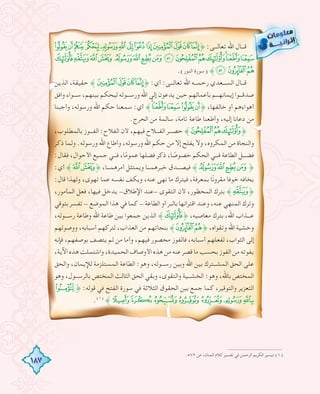 معلومات
قرآنية
قال الله تعالى: ﴿ إِنَّمَا كَانَ قَوْلَ الْمُؤْمِنِينَ إِذَا دُعُوا إِلَى اللَّهِ وَرَسُولِهِ لِيَحْكُمَ بَيْنَهُمْ أَن يَقُولُوا
سَمِعْنَا وَأَطَعْنَا وَأُولَٰئِكَ هُمُ الْمُفْلِحُونَ ﴿٥١﴾ وَمَن يُطِعِ اللَّهَ وَرَسُولَهُ وَيَخْشَ اللَّهَ وَيَتَّقْهِ فَأُولَٰئِكَ
هُمُ الْفَائِزُونَ ﴿٥٢﴾ ﴾ (سورة النور).
قال السعدي رحمه الله تعالى: أي: ﴿ إِنَّمَا كَانَ قَوْلَ الْمُؤْمِنِينَ ﴾ حقيقة، الذين
صدقوا إيمانهم بأعمالهم حين يدعون إلى الله ورسوله ليحكم بينهم، سواء وافق
أهواءهم أو خالفها، ﴿ أَن يَقُولُوا سَمِعْنَا وَأَطَعْنَا ﴾ أي: سمعنا حكم الله ورسوله، وأجبنا
من دعانا إليه، وأطعنا طاعة تامة، سالمة من الحرج.
﴿ وَأُولَٰئِكَ هُمُ الْمُفْلِحُونَ ﴾ حصر الفلاح فيهم، لأن الفلاح: الفوز بالمطلوب،
والنجاة من المكروه، ولا يفلح إلا من حكم الله ورسوله، وأطاع الله ورسوله. ولما ذكر
فضل الطاعة في الحكم خصوصًا، ذكر فضلها عمومًا، في جميع الأحوال، فقال:
﴿ وَمَن يُطِعِ اللَّهَ وَرَسُولَهُ ﴾ فيصدق خبرهما ويمتثل أمرهما، ﴿ وَيَخْشَ اللَّهَ ﴾ أي:
يخافه خوفًا مقرونًا بمعرفة، فيترك ما نهى عنه، ويكف نفسه عما تهوى، ولهذا قال:
﴿ وَيَتَّقْهِ ﴾ بترك المحظور، لأن التقوى –عند الإطلاق– يدخل فيها، فعل المأمور،
وترك المنهي عنه، وعند اقترانها بالبر أو الطاعة – كما في هذا الموضع – تفسر بتوقي
عذاب الله، بترك معاصيه، ﴿ فَأُولَٰئِكَ ﴾ الذين جمعوا بين طاعة الله وطاعة رسوله،
وخشية الله وتقواه، ﴿ هُمُ الْفَائِزُونَ ﴾ بنجاتهم من العذاب، لتركهم أسبابه، ووصولهم
إلى الثواب، لفعلهم أسبابه، فالفوز محصور فيهم، وأما من لم يتصف بوصفهم، فإنه
يفوته من الفوز بحسب ما قصر عنه من هذه الأوصاف الحميدة، واشتملت هذه الآية،
على الحق المشترك بين الله وبين رسوله، وهو: الطاعة المستلزمة للإيمان، والحق
المختص بالله، وهو: الخشية والتقوى، وبقي الحق الثالث المختص بالرسول، وهو
التعزير والتوقير، كما جمع بين الحقوق الثلاثة في سورة الفتح في قوله: ﴿ لِّتُؤْمِنُوا
بِاللَّهِ وَرَسُولِهِ وَتُعَزِّرُوهُ وَتُوَقِّرُوهُ وَتُسَبِّحُوهُ بُكْرَةً وَأَصِيلًا ﴾ (١).
(١) تيسير الكريم الرحمن في تفسير كلام المنان، ص ٥٧٢.
١٨٧